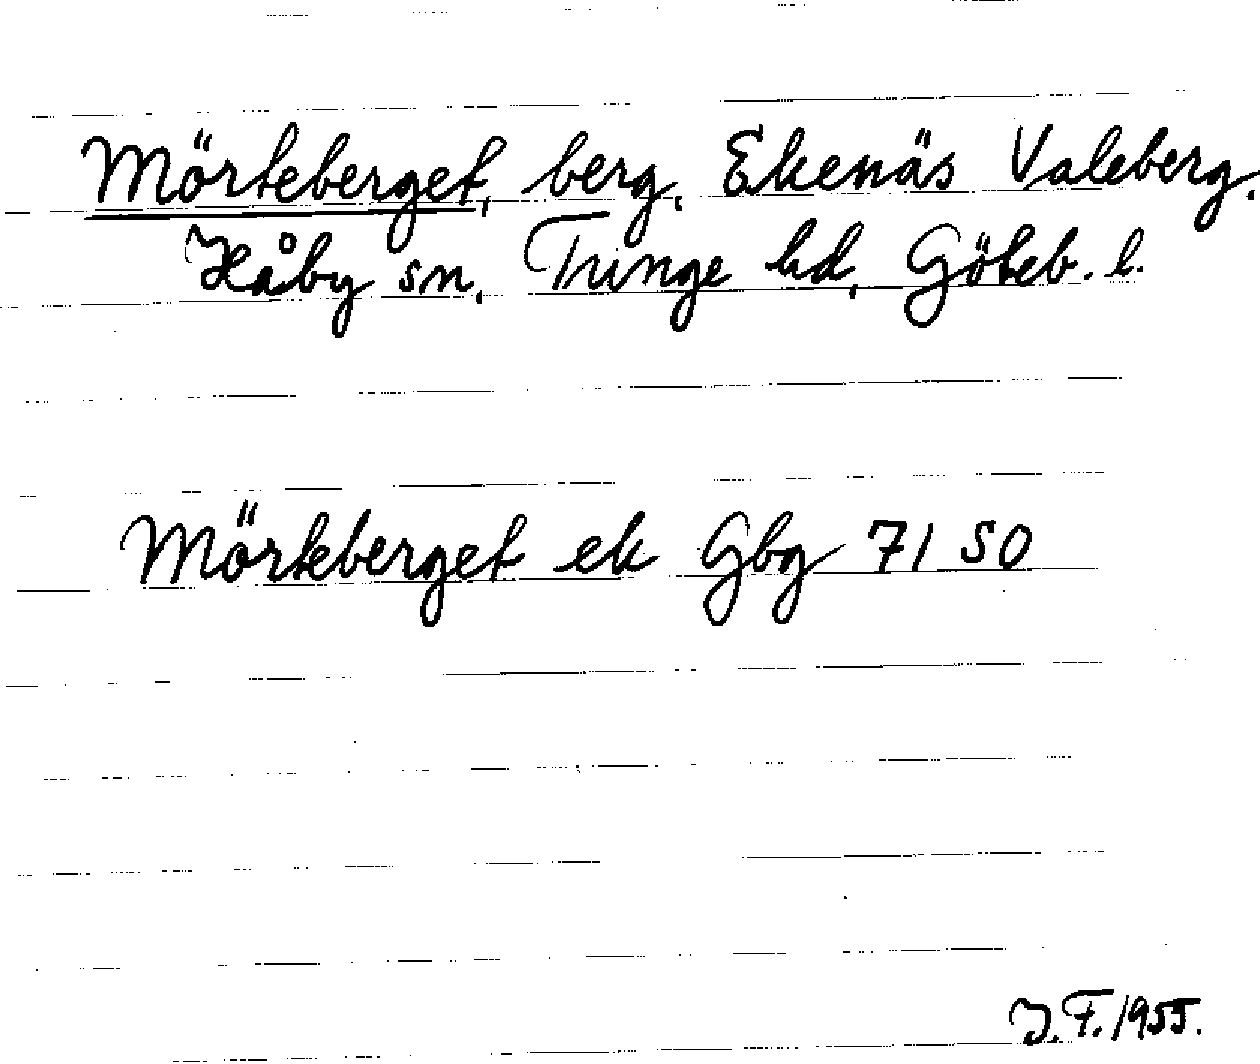 Mörteberget, berg, Ekenäs Valeberg,
Håby sn, Tunge hd, Göteb. l.
Mörteberget ek Gbg 71 SO
J.F. 1955.